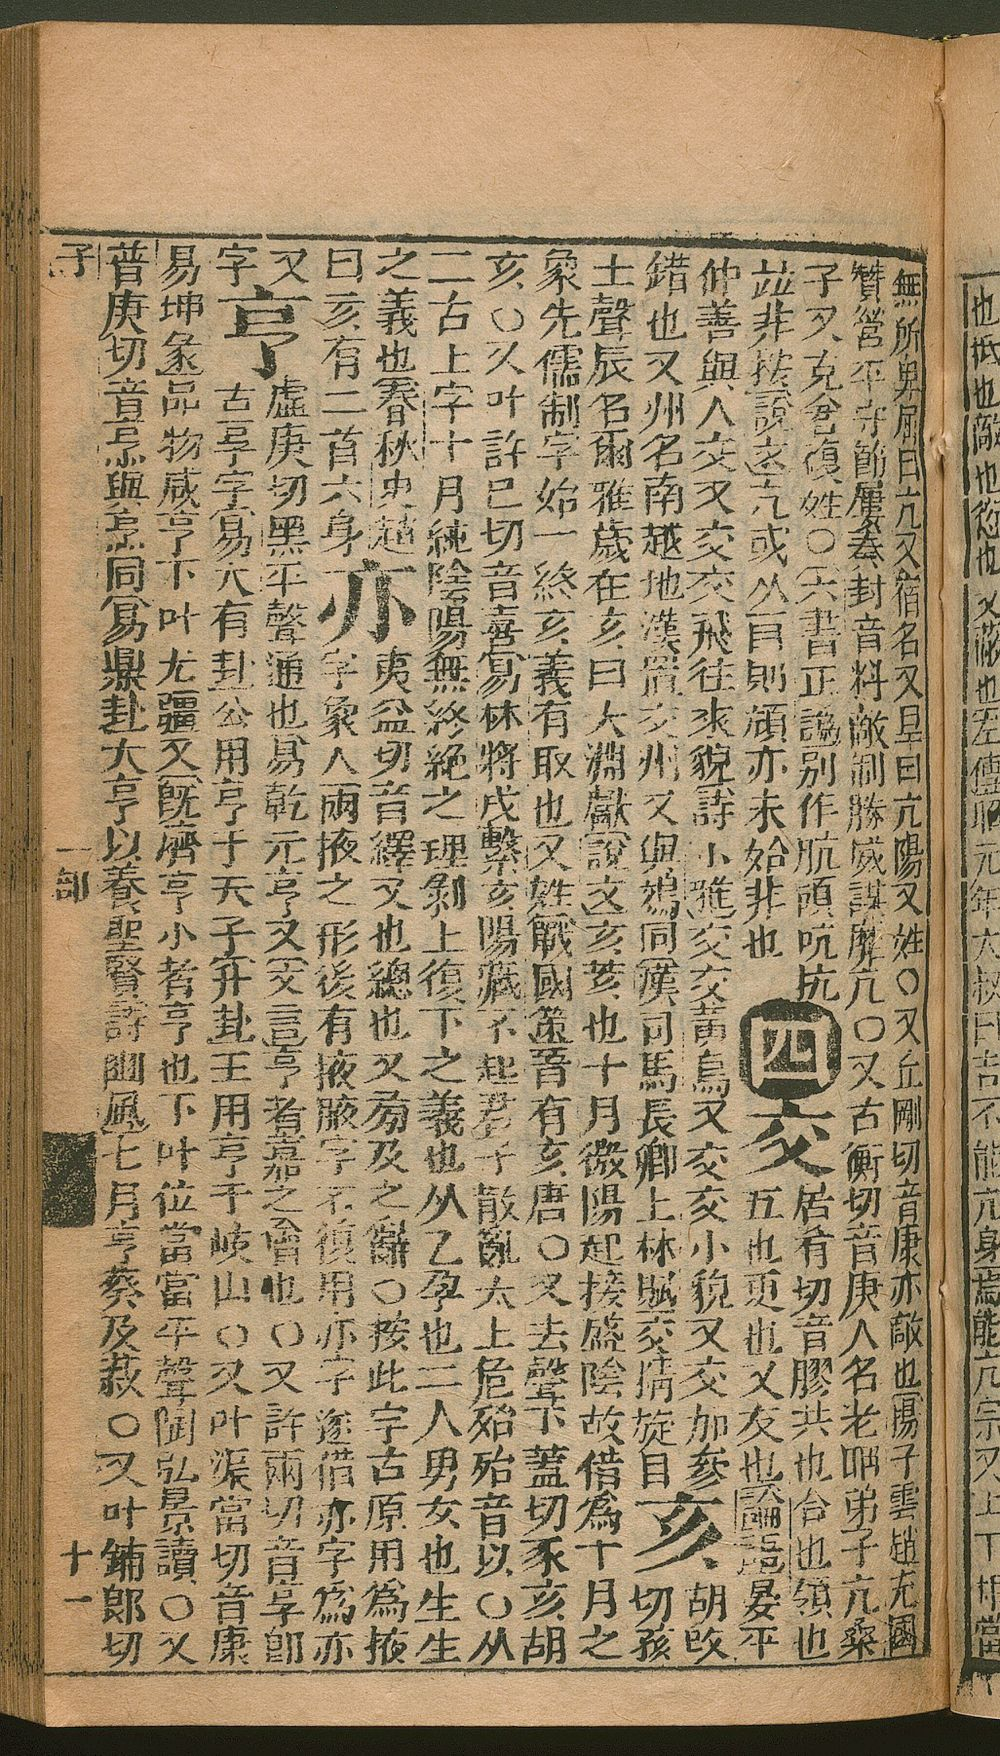 無所畀屆曰亢又宿名又旱曰亢陽又姓○又丘剛切音康亦敵也陽子雲趙充國
贊營平守節屢奏封章料敵制勝威謀靡亢○又古衡切音庚人名老聃弟子亢桑
子又克倉復姓○六書正譌別作肮頏吭抗
竝非按說文亢或从頁則頏亦未始非也 四 交 居肴切音膠共也合也領也
五也更也又友也論語晏平
仲善與人交又交交飛往來貌詩小雅交交黃鳥又交交小貌又交加參
錯也又州名南越地漢置交州又與䴔同漢司馬長卿上林賦交精旋目 亥 胡改
切孩
上聲辰名爾雅歲在亥曰大淵獻說文亥荄也十月微陽起接盛陰故借爲十月之
象先儒制字始一終亥義有取也又姓戰國策晉有亥唐○又去聲下蓋切豕亥胡
亥○又叶許已切音喜易林將戌繫亥陽藏不起君子散亂太上危殆殆音以○从
二古上字十月純陰陽無終絕之理剝上復下之義也从乙孕也二人男女也生生
之義也春秋史趙
曰亥有二首六身 亦 夷益切音繹又也總也又旁及之辭○按此字古原用爲掖
字象人兩掖之形後有掖腋字不復用亦字遂借亦字爲亦
又
字 亨 虛庚切黑平聲通也易乾元亨又文言亨者嘉之會也○又許兩切音享卽
古享字易大有卦公用亨于天子升卦王用亨于岐山○又叶滂當切音康
易坤彖品物咸亨下叶尤疆又旣濟亨小者亨也下叶位當當平聲陶弘景讀○又
普庚切音烹與烹同易鼎卦大亨以養聖賢詩豳風七月亨葵及菽○又叶鋪郎切
子 一部 十一
也抵也敵也